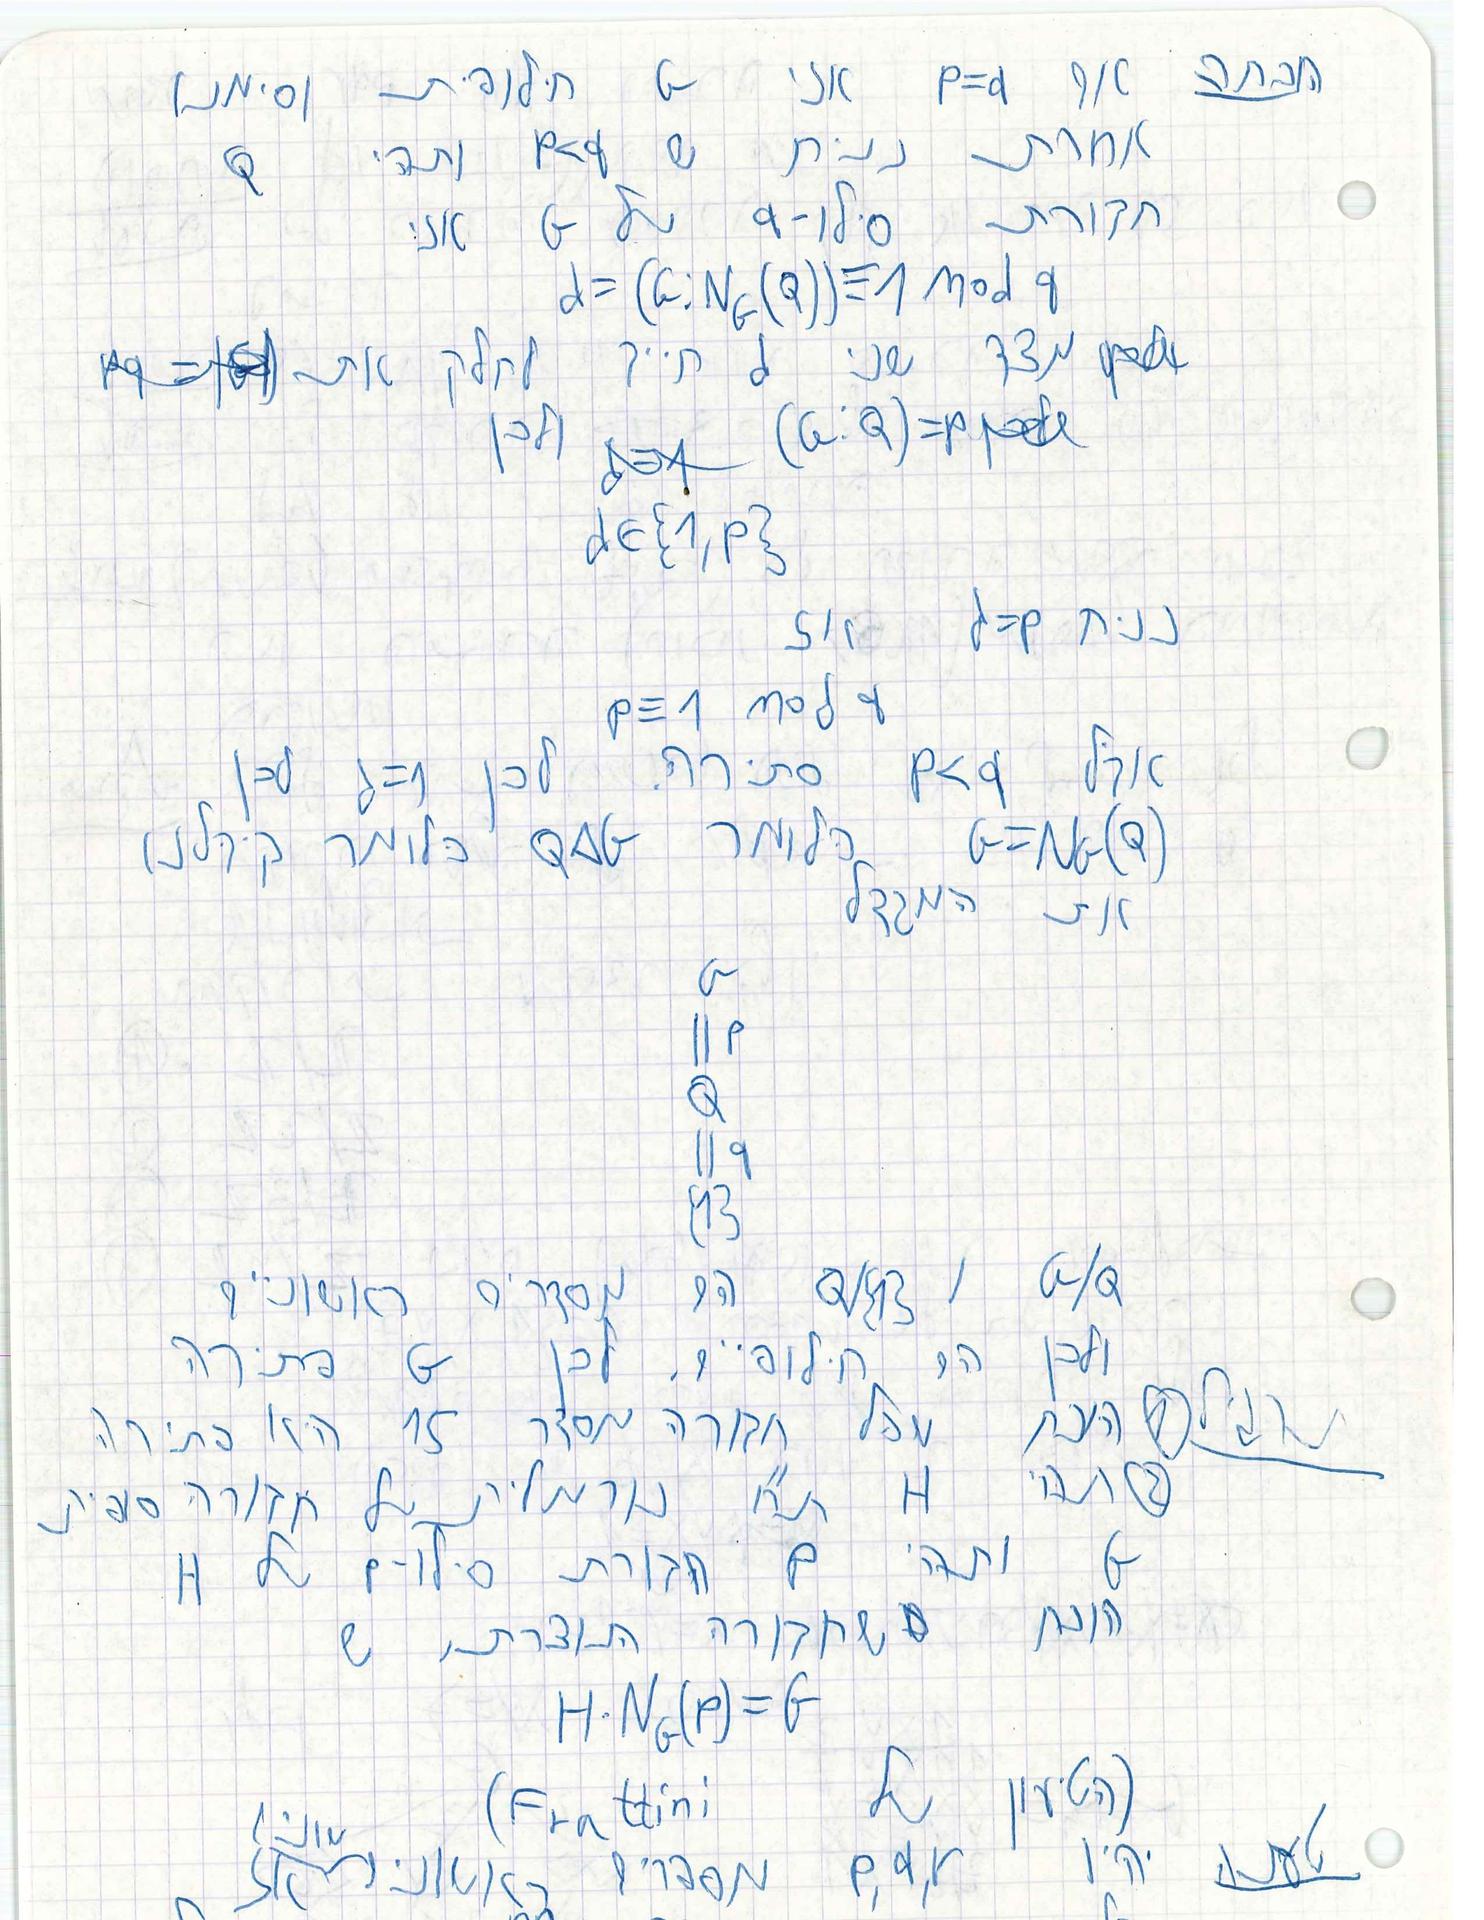 הוכחה אם p=q אזי G חילופית וסיימנו
אחרת נניח ש p<q ותהי Q
חבורת סילו-q של G אזי
d=(G:N_G(Q))≡1 mod q
מצד שני d חייב לחלק את
(G:Q)=p ולכן
d∈{1,p}
נניח d=p אז
p≡1 mod q
אבל p<q סתירה. לכן d=1 לכן
G=N_G(Q) כלומר Q⊲G כלומר קיבלנו
את המגדל
G
||p
Q
||q
{1}
G/Q ו Q/{1} הם מסדרים ראשוניים
ולכן הם חילופיים. לכן G פתירה
תרגיל ① הוכח שכל חבורה מסדר 15 היא פתירה
② תהי H ת"ח נורמלית של חבורה סופית
G ותהי P חבורת סילו-p של H
הוכח שחבורה הנוצרת, ש
H·N_G(P)=G
(הטיעון של Frattini)
טענה יהיו p,q,r מספרים ראשוניים שונים אז